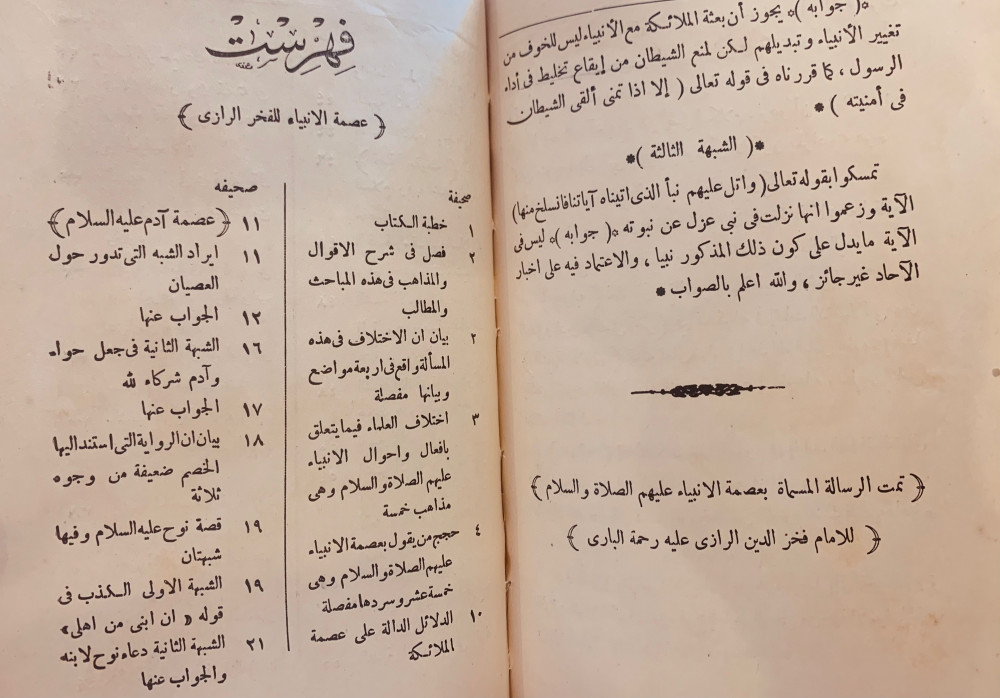 * ( جوابه ) * يجوز أن بعثة الملائكة مع الأنبياء ليس للخوف من
تغيير الأنبياء وتبديلهم لكن لمنع الشيطان من إيقاع تخليط فى أداء
الرسول ، كما قررناه فى قوله تعالى ( إلا اذا تمنى ألقى الشيطان
فى أمنيته ) *
* ( الشبهة الثالثة ) *
تمسكوا بقوله تعالى ( واتل عليهم نبأ الذى اتيناه آياتنا فانسلخ منها )
الآية وزعموا انها نزلت فى نبى عزل عن نبوته * ( جوابه ) * ليس فى
الآية ما يدل على كون ذلك المذكور نبيا ، والاعتماد فيه على اخبار
الآحاد غير جائز ، والله اعلم بالصواب *
﴿ تمت الرسالة المسماة بعصمة الانبياء عليهم الصلاة والسلام ﴾
﴿ للامام فخز الدين الرازى عليه رحمة البارى ﴾
فهرست
﴿ عصمة الانبياء للفخر الرازى ﴾
صحيفة
١ خطبة الكتاب
٢ فصل فى شرح الاقوال
والمذاهب فى هذه المباحث
والمطالب
٢ بيان ان الاختلاف فى هذه
المسألة واقع فى اربعة مواضع
وبيانها مفصلة
٣ اختلاف العلماء فيما يتعلق
بافعال واحوال الانبياء
عليهم الصلاة والسلام وهى
مذاهب خمسة
٤ حجج من يقول بعصمة الانبياء
عليهم الصلاة والسلام وهى
خمسة عشر وسردها مفصلة
١٠ الدلائل الدالة على عصمة
الملائكة
صحيفه
١١ ﴿ عصمة آدم عليه السلام ﴾
١١ ايراد الشبه التى تدور حول
العصيان
١٢ الجواب عنها
١٦ الشبهة الثانية فى جعل حواء
وآدم شركاء لله
١٧ الجواب عنها
١٨ بيان ان الرواية التى استند اليها
الخصم ضعيفة من وجوه
ثلاثة
١٩ قصة نوح عليه السلام وفيها
شبهتان
١٩ الشبهة الاولى الكذب فى
قوله « ان ابنى من اهلى »
٢١ الشبهة الثانية دعاء نوح لابنه
والجواب عنها